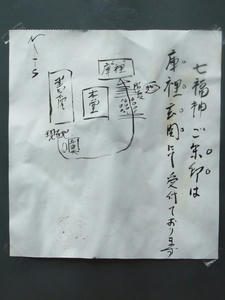 七福神ご朱印は
庫裡玄関にて受付ております
庫裡
本堂
現在地